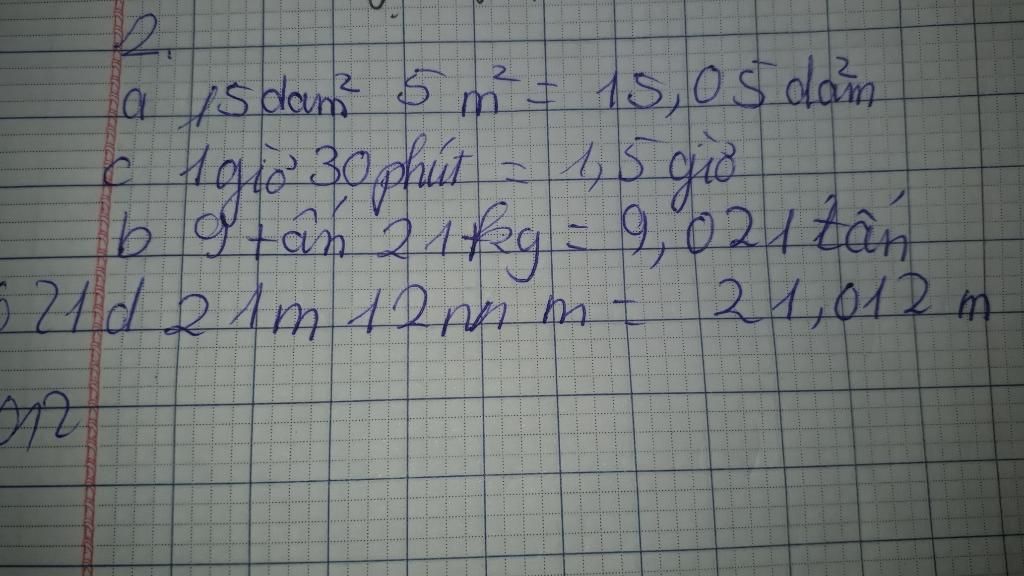 2.
a 15dam² 5 m² = 15,05 dam²
c 1giờ 30 phút = 1,5 giờ
b 9 tấn 21 kg = 9,021 tấn
21 d 21m 12mm = 21,012 m
012